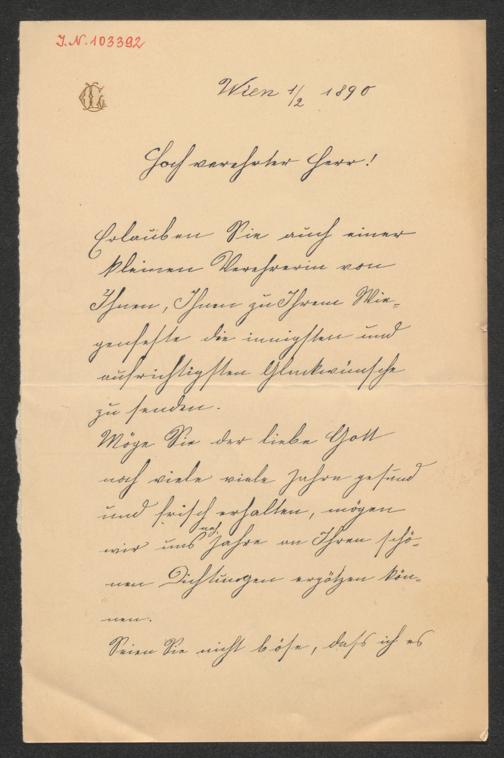 J.N. 103392
Wien 1/2 1890
Hoch verehrter Herr!
Erlauben Sie auch einer
kleinen Verehrerin von
Ihnen, Ihnen zu Ihrem Wie-
genfeste die innigsten und
aufrichtigsten Glückwünsche
zu senden.
Möge Sie der liebe Gott
noch viele viele Jahre gesund
und frisch erhalten, mögen
wir uns noch Jahre an Ihren schö-
nen Dichtungen ergötzen kön-
nen.
Seien Sie nicht böse, dass ich es